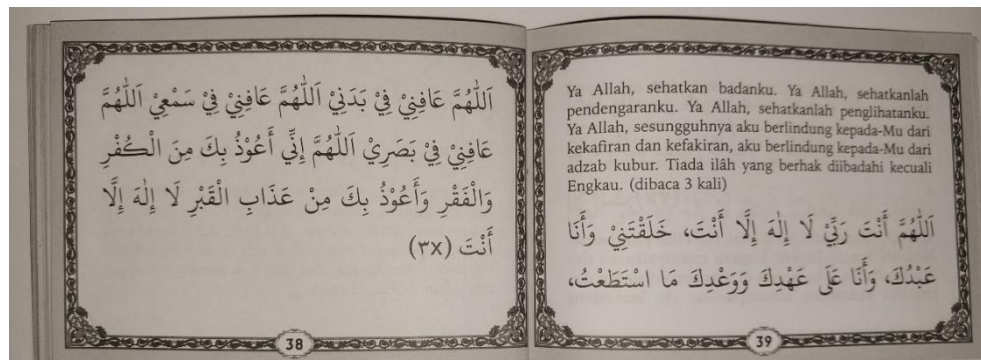 اَللّٰهُمَّ عَافِنِيْ فِيْ بَدَنِيْ اَللّٰهُمَّ عَافِنِيْ فِيْ سَمْعِيْ اَللّٰهُمَّ
عَافِنِيْ فِيْ بَصَرِيْ اَللّٰهُمَّ إِنِّي أَعُوْذُ بِكَ مِنَ الْكُفْرِ
وَالْفَقْرِ وَأَعُوْذُ بِكَ مِنْ عَذَابِ الْقَبْرِ لَا إِلٰهَ إِلَّا
أَنْتَ (٣x)
38
Ya Allah, sehatkan badanku. Ya Allah, sehatkanlah
pendengaranku. Ya Allah, sehatkanlah penglihatanku.
Ya Allah, sesungguhnya aku berlindung kepada-Mu dari
kekafiran dan kefakiran, aku berlindung kepada-Mu dari
adzab kubur. Tiada ilâh yang berhak diibadahi kecuali
Engkau. (dibaca 3 kali)
اَللّٰهُمَّ أَنْتَ رَبِّيْ لَا إِلٰهَ إِلَّا أَنْتَ، خَلَقْتَنِيْ وَأَنَا
عَبْدُكَ، وَأَنَا عَلَى عَهْدِكَ وَوَعْدِكَ مَا اسْتَطَعْتُ،
39